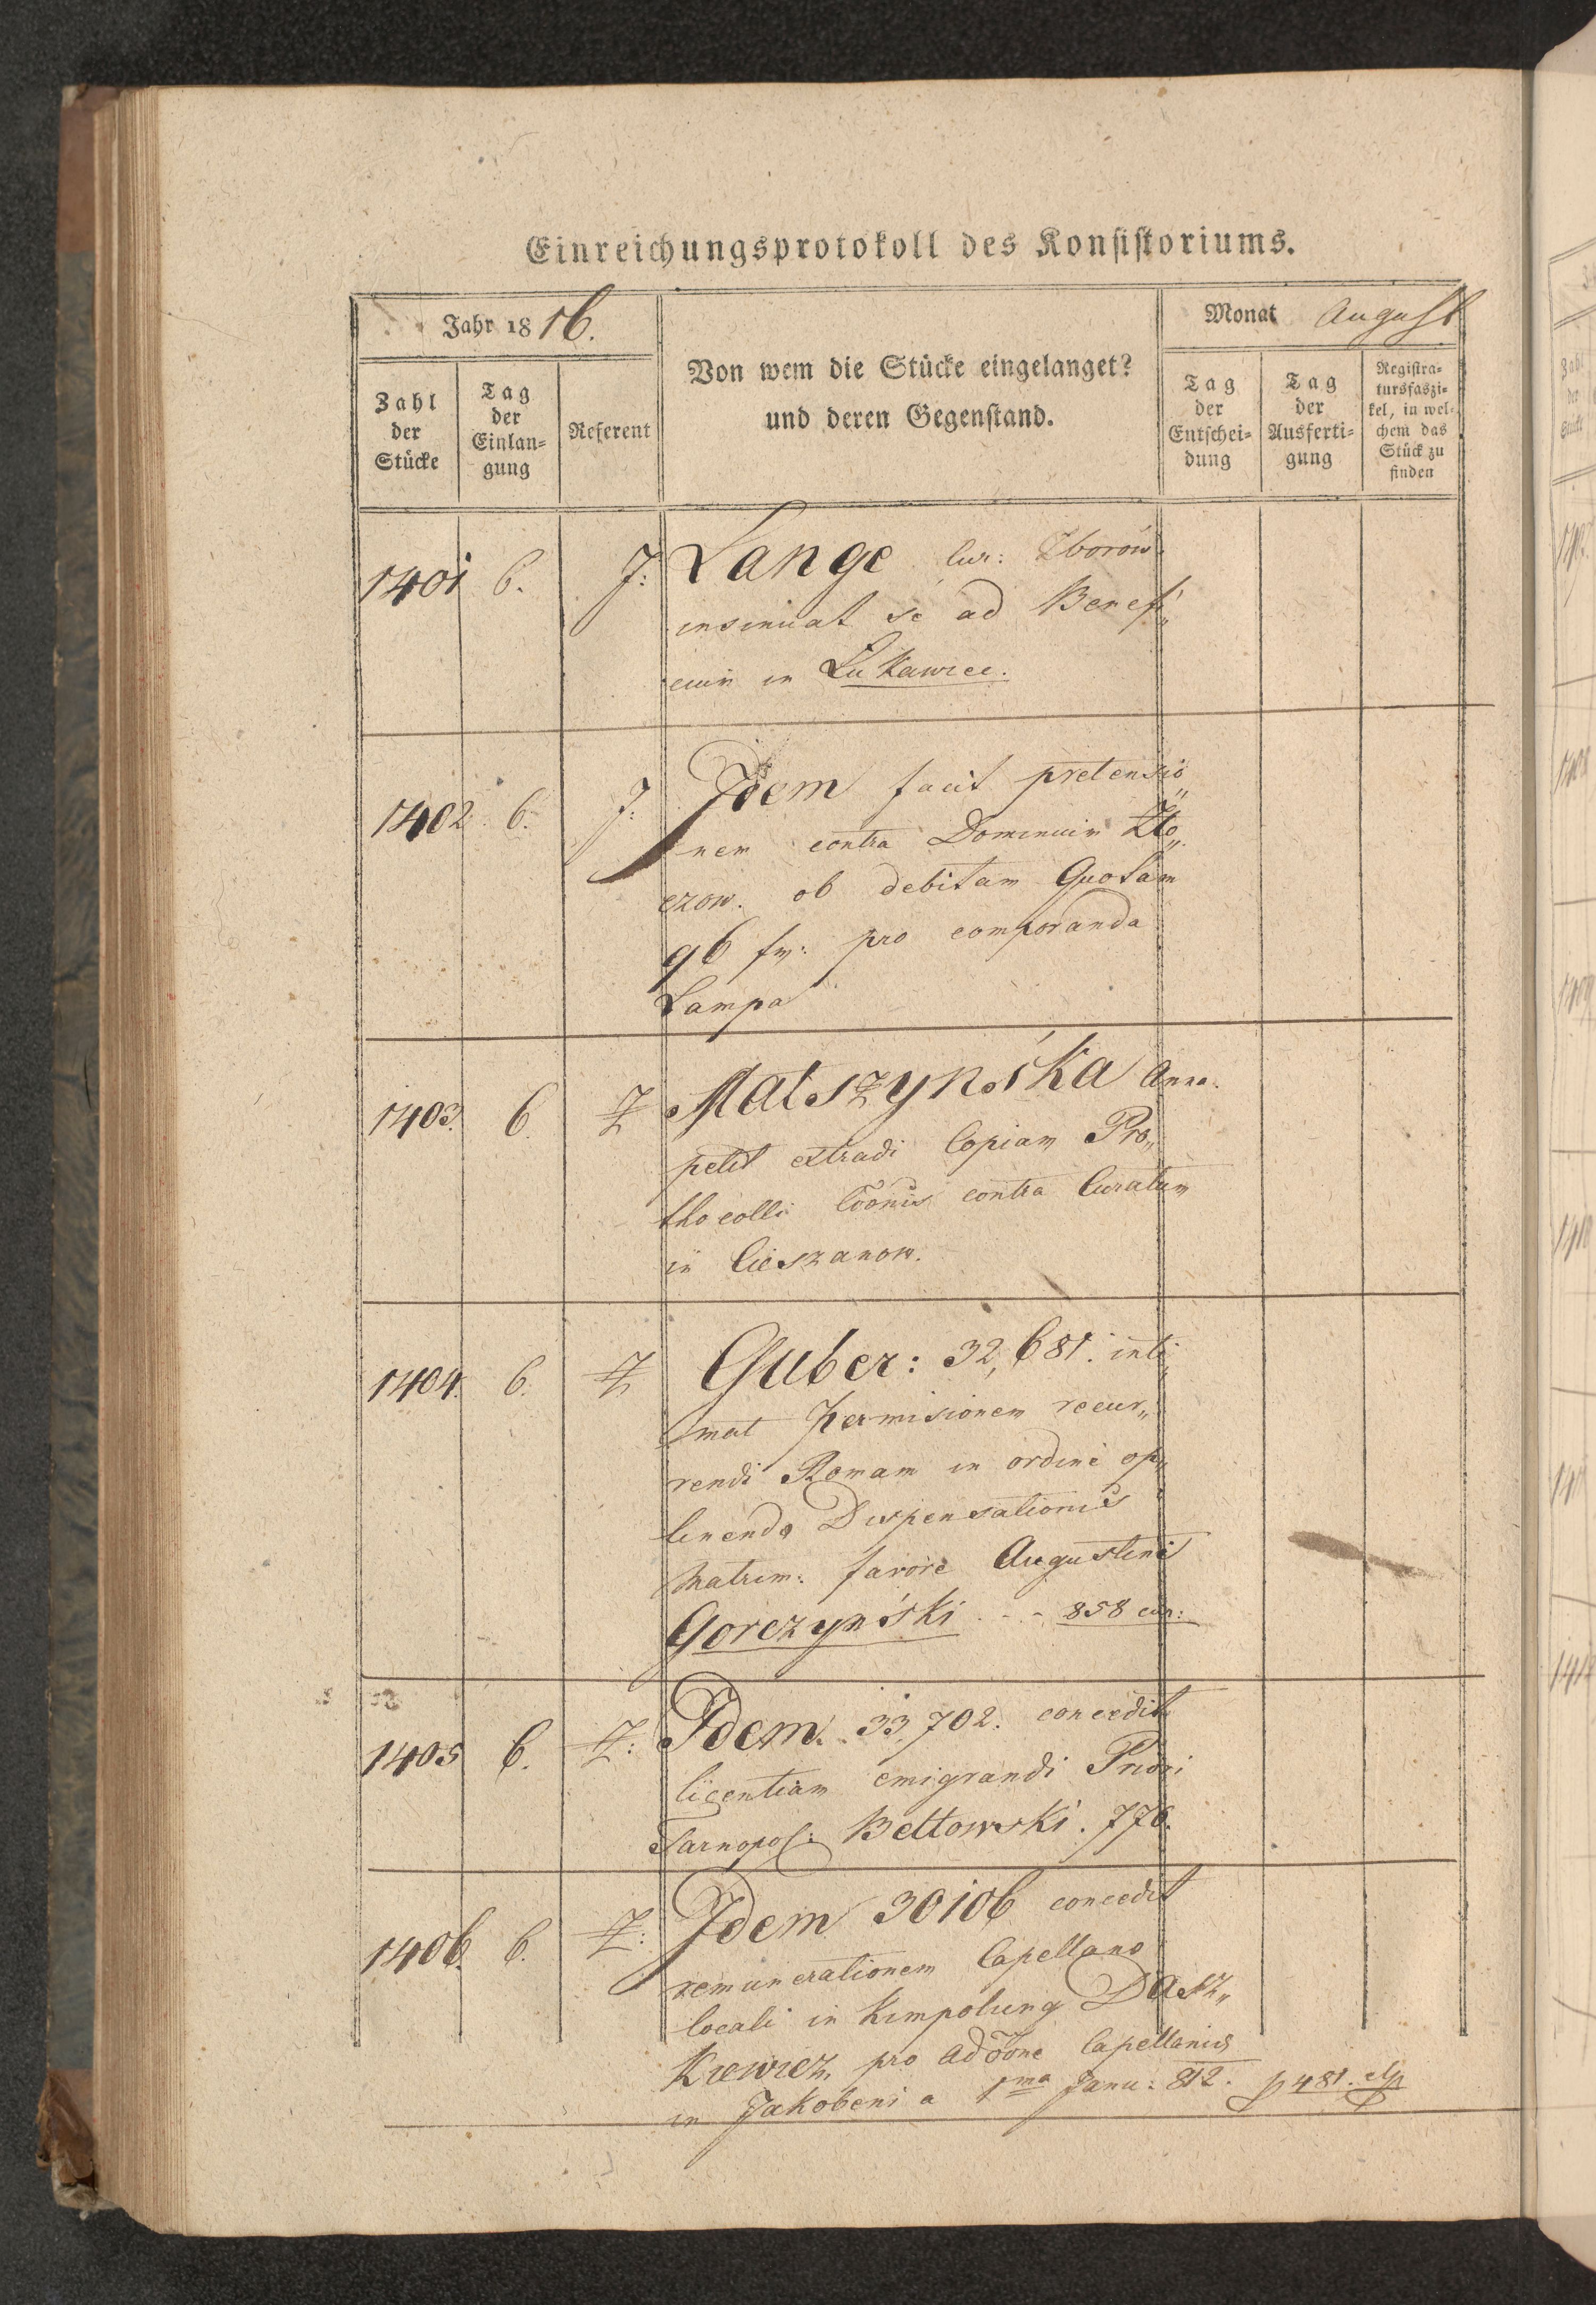 Einreichungsprotokoll des Konsistoriums.
Jahr 1816. Monat August
Zahl der Stücke
Tag der Einlan=gung
Referent
Von wem die Stücke eingelanget?
und deren Gegenstand.
Tag der Entschei=dung
Tag der Ausferti=gung
Registra=tursfaszi=kel, in wel=chem das Stück zu finden
1401 6. J: Lange Cur: Zborów.
insinuat se ad Benef„
cium in Lukawiec.
1402 6. J: Idem facit pretensio„
nem contra Dominium Zło„
czow. ob debitam Quotam
96 fr: pro comporanda
Lampa
1403. 6. Z Matszyńska Anna.
petit extradi Copiam Pro„
thocolli Cöonis contra Curatum
in Cieszanow.
1404. 6. Z Guber: 32,681. inti„
mat permisionem recur„
rendi Romam in ordine op„
tinenda Dispensationis
Matrim: favore Augustini
Gorczyński - - 858 cur:
1405 6. Z: Idem. 33,702. concedit
licentiam emigrandi Priori
Tarnopol: Bełtowski. 776.
1406. 6. Z: Idem 30106 concedit
remunerationem Capellano
locali in Kimpolung Dasz„
Kiewicz, pro Adöone Capellanius
in Jakobeni a 1ma Janu: 812. p 481. elp